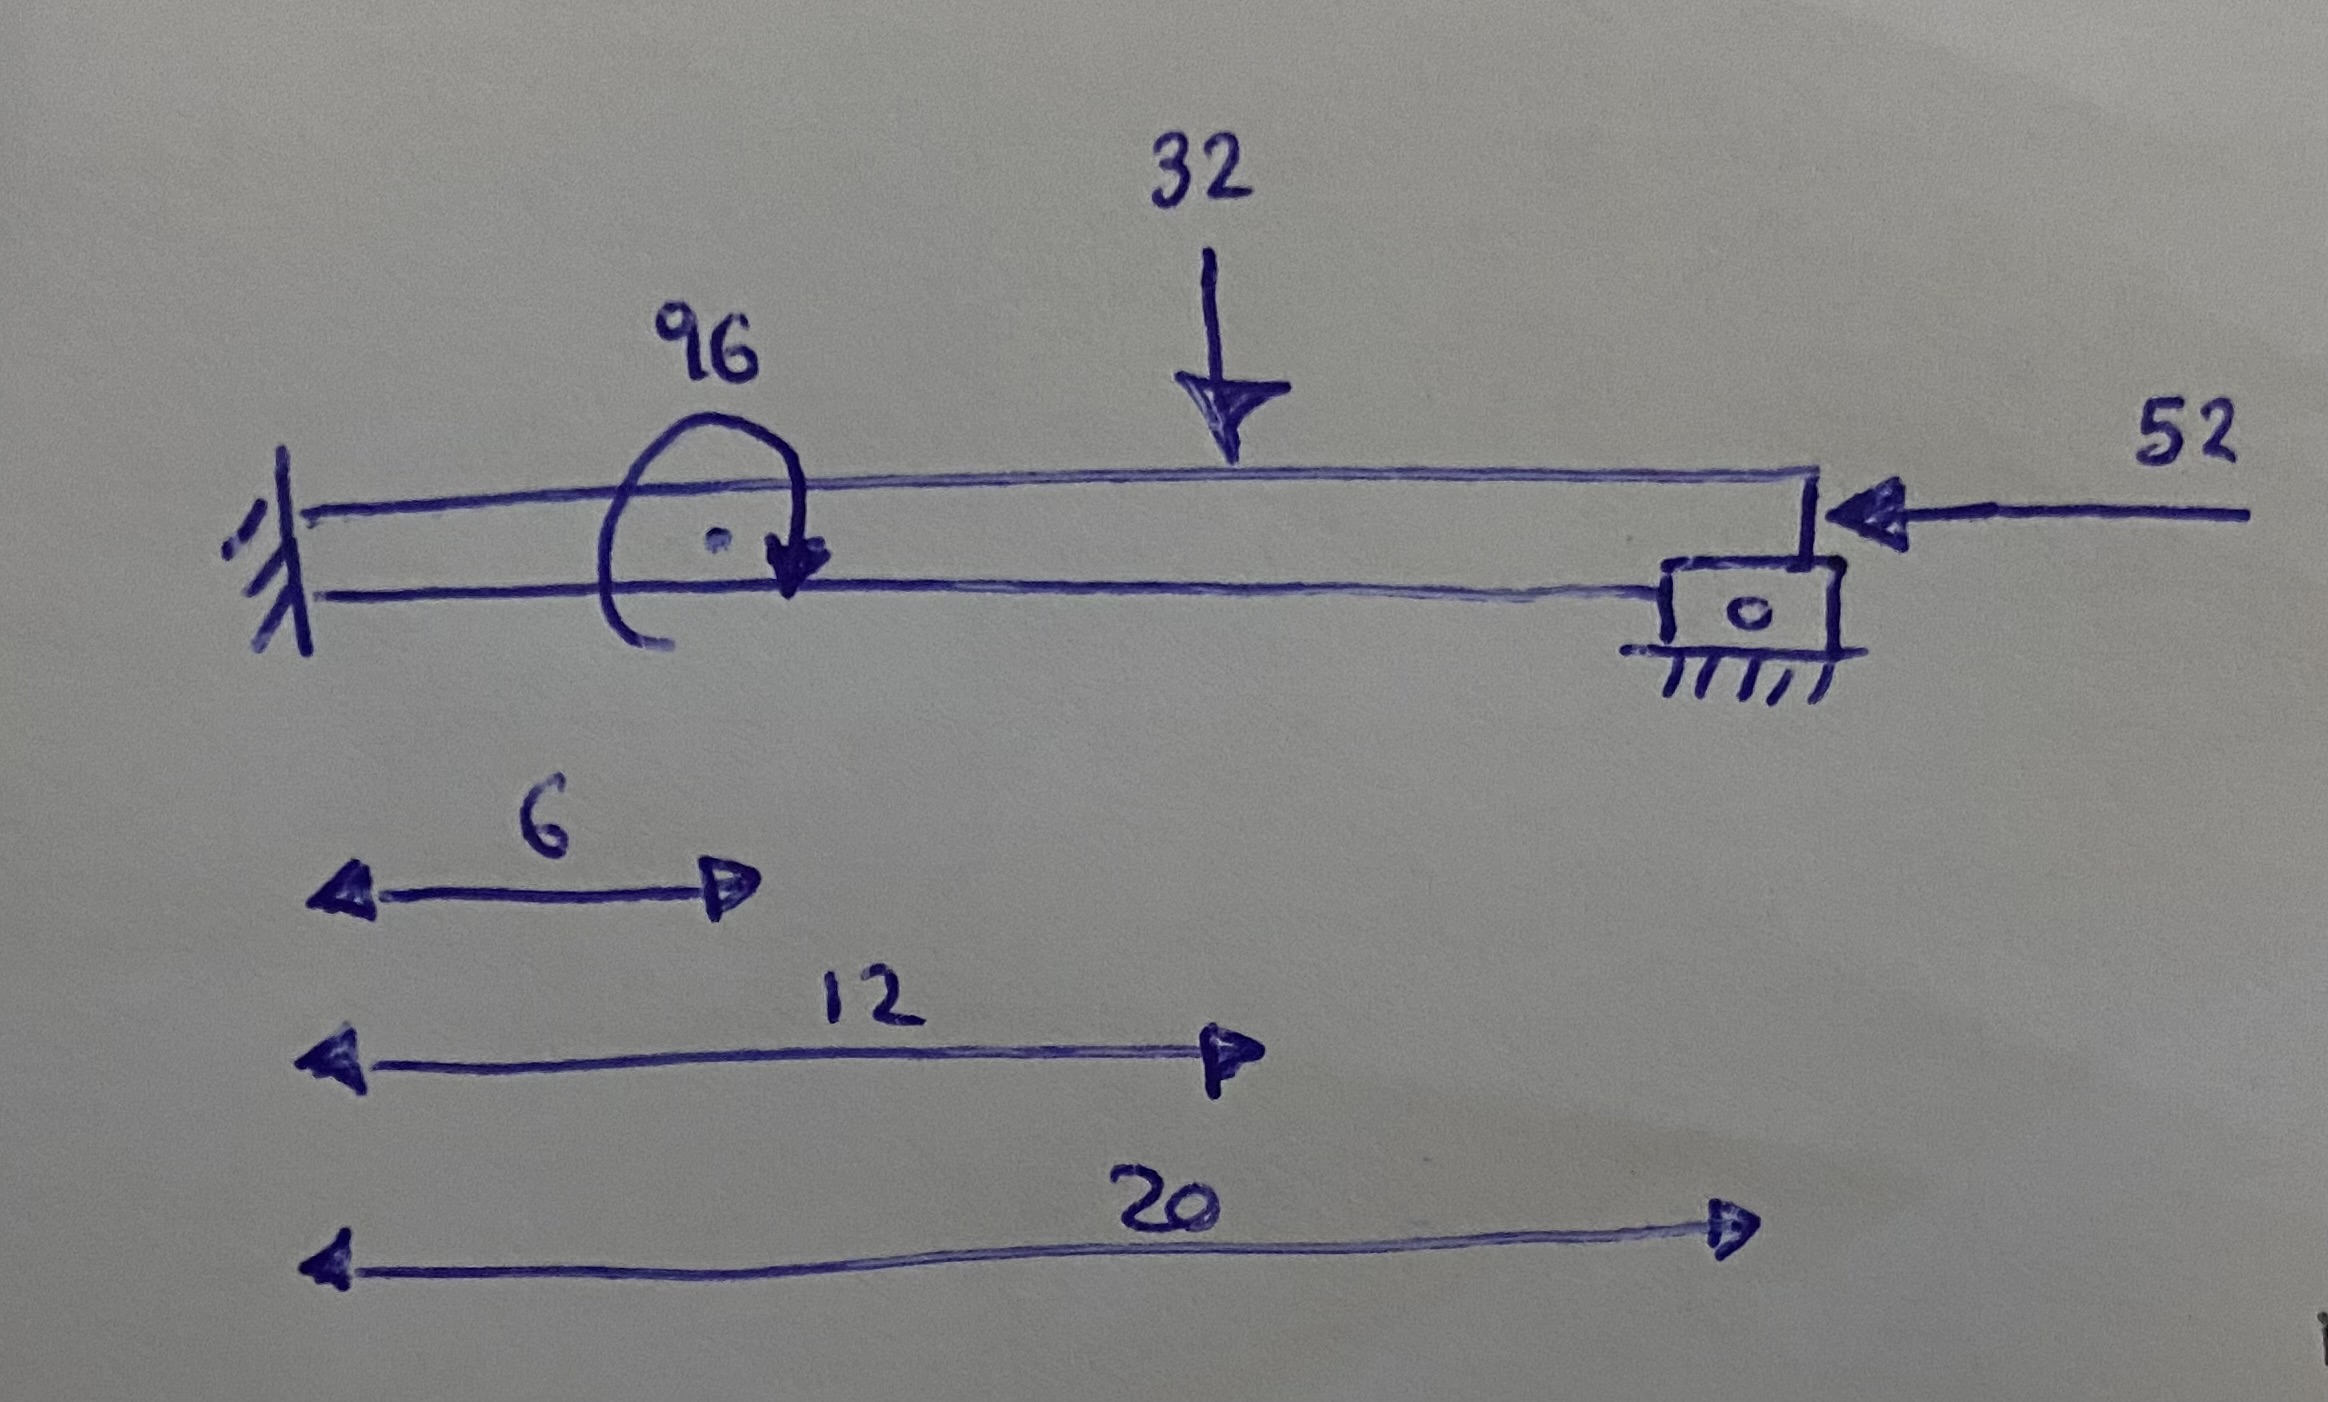 32
96
52
6
12
20